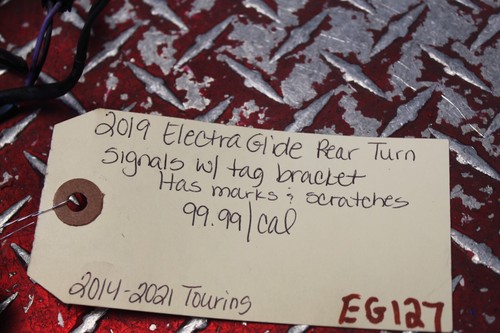 2019 Electra Glide Rear Turn
signals w/ tag bracket
Has marks & scratches
99.99/cal
2014-2021 Touring
EG127